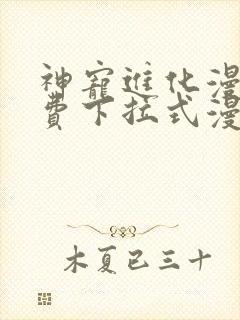 神寵進化漫
費下拉式漫
木夏已三十